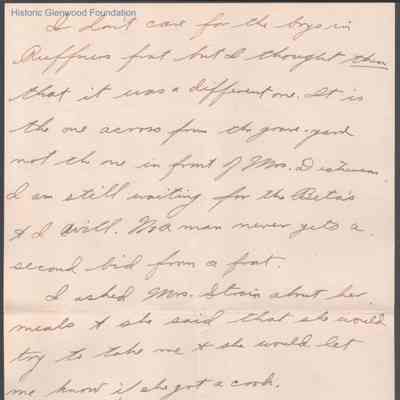 Historic Glenwood Foundation
I don't care for the boys in
Ruffners frat but I thought then
that it was a different one. It is
the one across from the grave-yard
not the one in front of Mrs. 
I am still waiting for the Beta's
& I will. No a man never gets a
second bid from a frat.
I asked Mrs. Strain about her
meals & she said that she would
try to take me & she would let
me know if she got a cook.